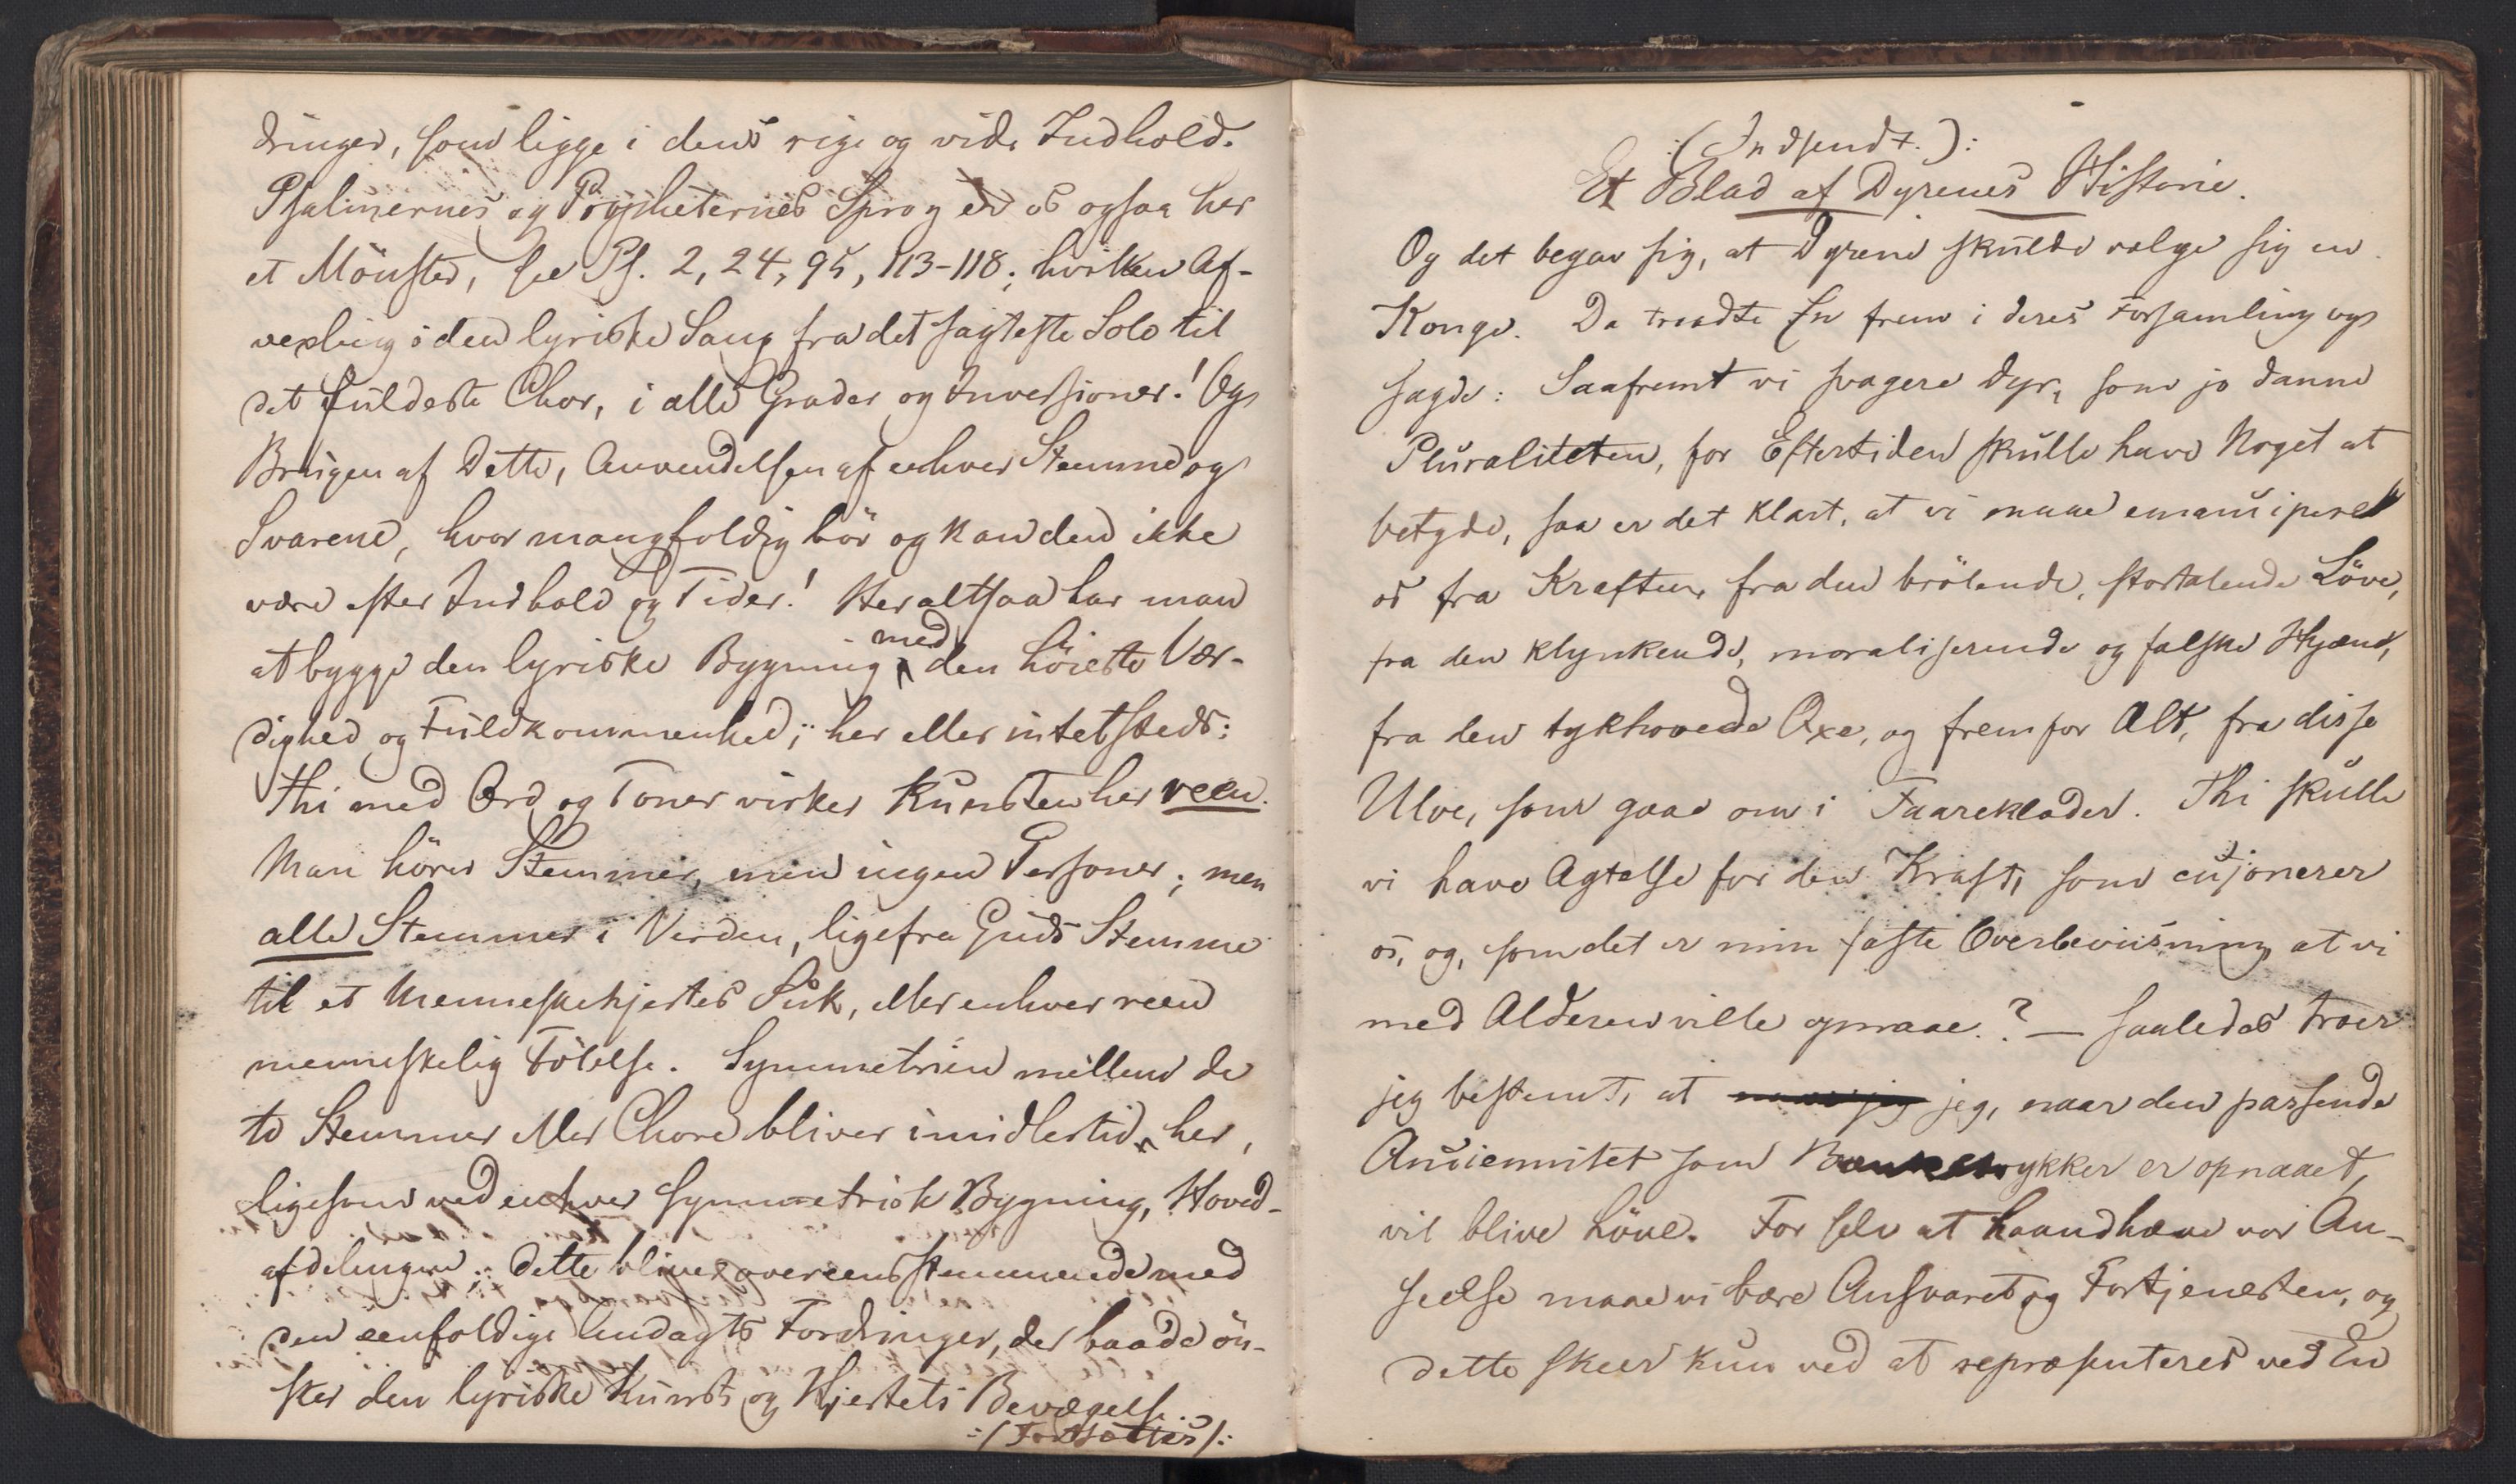 dringer, som ligge i dens rige og vide Indhold.
Psalmernes og Propheternes Sprog er os ogsaa her
et Mönster, see Ps. 2, 24, 95, 113-118; hvilken Af-
vexling i den lyriske Sang fra det sagteste Solo til
det fuldeste Chor, i alle Grader og Inversioner! Og
Brugen af Dette, Anvendelsen af enhver Stemme og
Svarene, hvor mangfoldig bör og kan den ikke
være efter Indhold og Tider! Her altsaa har man
at bygge den lyriske Bygning med den höieste Vær-
dighed og Fuldkommenhed; her eller intetsteds:
Thi med Ord og Toner virker Kunsten her reen.
Man hörer Stemmer, men ingen Personer; men
alle Stemmer i Verden, ligefra Guds Stemme
til et Menneskehjertes Suk, eller enhver reen
menneskelig Fölelse. Symmetrien mellem de
to Stemmer eller Chore bliver imidlertid her,
ligesom ved enhver symmetrisk Bygning, Hoved-
afdelingen; Dette bliver overeensstemmende med
den eenfoldige Andagts Fordringer, der baade ön-
sker den lyriske Kunst og Hjertets Bevægelse.
:(Fortsættes):
:(Indsendt.):
Et Blad af Dyrenes Historie.
Og det begav sig, at Dyrene skulde vælge sig en
Konge. Da traadte En frem i deres Forsamling og
sagde: Saafremt vi svagere Dyr, som jo danne
Pluraliteten, for Eftertiden skulle have Noget at
betyde, saa er det klart, at vi maae emancipere
os fra Kraften, fra den brölende, stortalende Löve,
fra den klynkende, moraliserende og falske Hyæne,
fra den tykhovede Oxe, og fremfor Alt, fra disse
Ulve, som gaae om i Faareklæder. Thi skulle
vi have Agtelse for den Kraft, som cujonerer
os, og, som det er min faste Overbeviisning at vi
med Alderen ville opnaae? — Saaledes troer
jeg bestemt, at jeg, naar den passende
Anciennitet som er opnaaet,
vil blive Löve. For selv at haandhæve vor An-
seelse maae vi bære Ansvaret og Fortjenesten, og
dette skeer kun ved at repræsenteres ved En